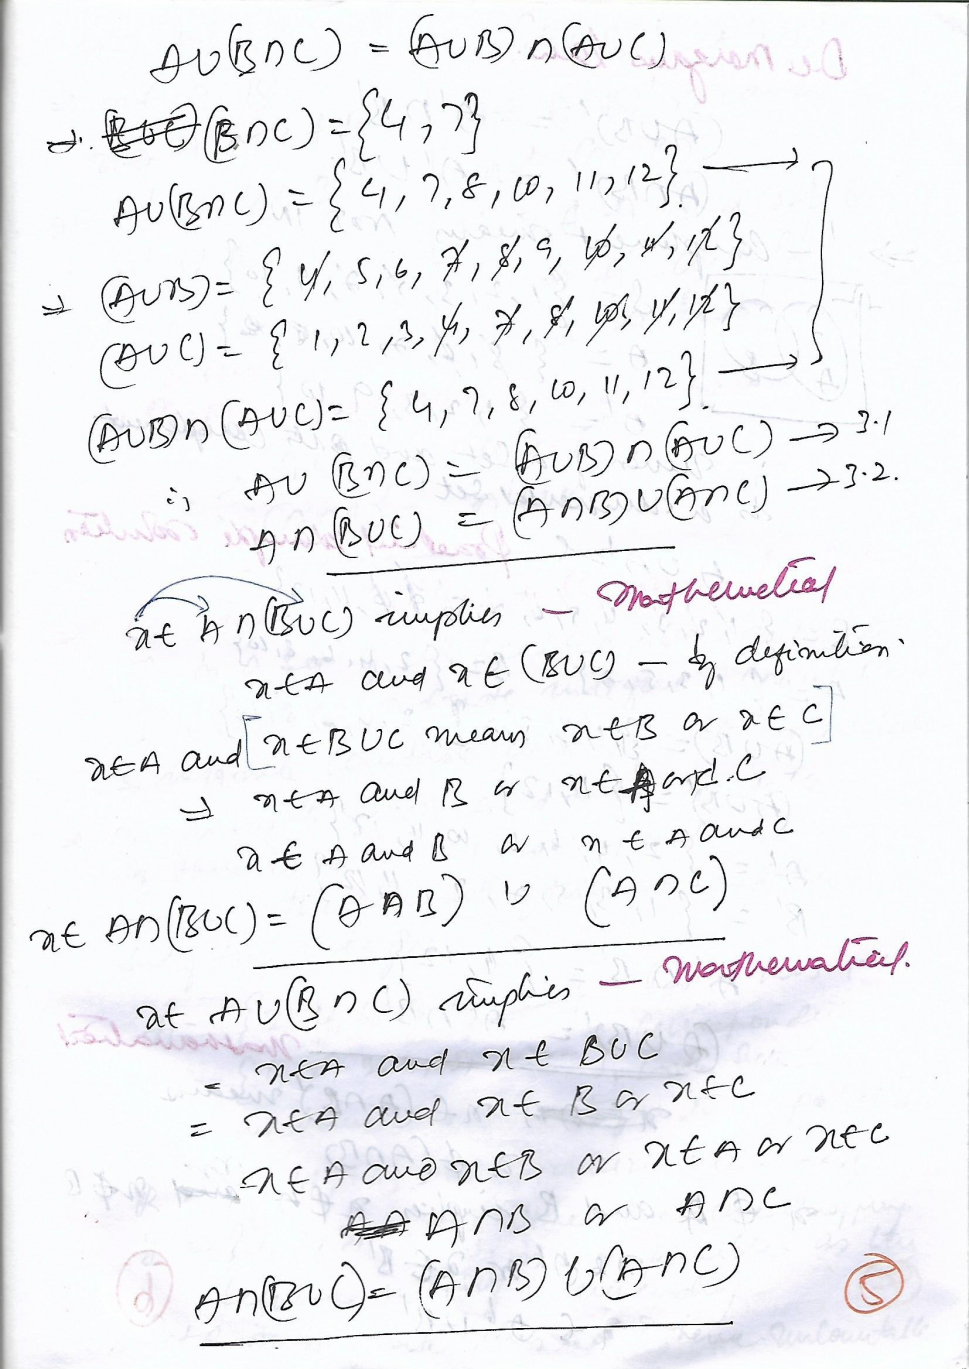 A∪(B∩C) = (A∪B)∩(A∪C)
→. (B∩C) = {4, 7}
A∪(B∩C) = {4, 7, 8, 10, 11, 12}. →
⇒ (A∪B) = {4, 5, 6, 7, 8, 9, 10, 11, 12}
(A∪C) = {1, 2, 3, 4, 7, 8, 10, 11, 12}
(A∪B)∩(A∪C) = {4, 7, 8, 10, 11, 12}. →
A∪(B∩C) = (A∪B)∩(A∪C) → 3.1
A∩(B∪C) = (A∩B)∪(A∩C) → 3.2.
x∈ A∩(B∪C) implies – Mathematical
x∈A and x∈(B∪C) – by definition.
x∈A and [x∈B∪C means x∈B or x∈C]
⇒ x∈A and B or x∈A and C
x∈A and B or x∈A and C
x∈ A∩(B∪C) = (A∩B) ∪ (A∩C)
x∈ A∪(B∩C) implies – Mathematical.
= x∈A and x∈ B∪C
= x∈A and x∈ B or x∈C
x∈A and x∈B or x∈A or x∈C
A∩B or A∩C
A∩(B∪C) = (A∩B)∪(A∩C)
5